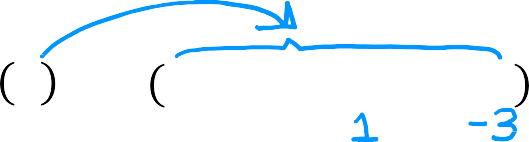 ( ) ( )
1 -3